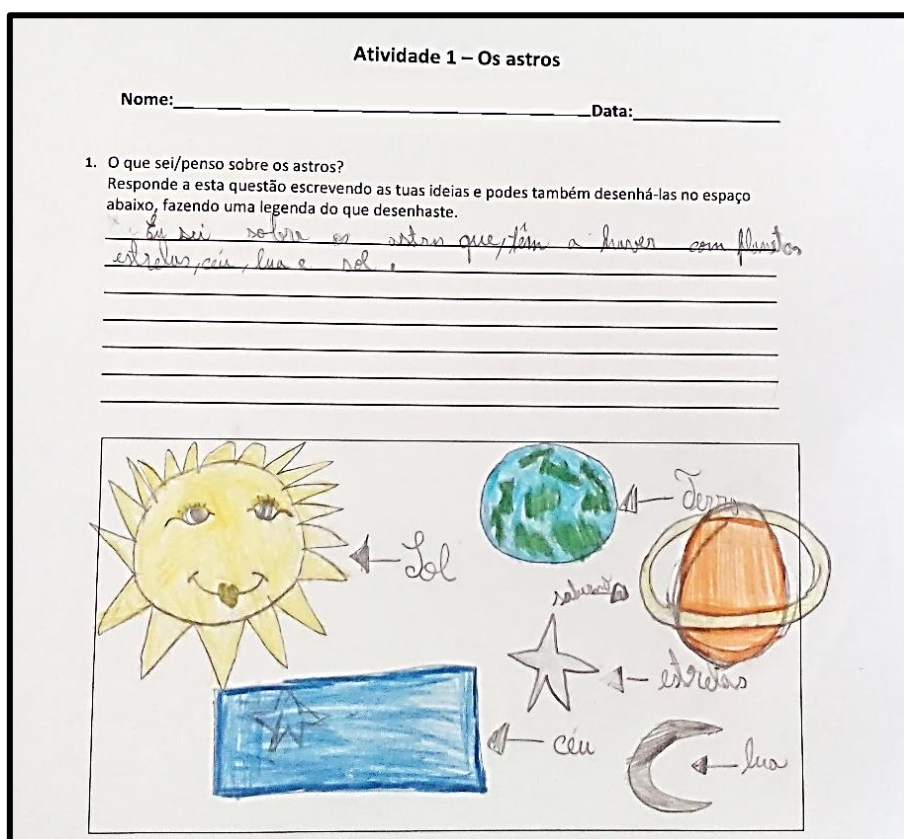 Atividade 1 – Os astros
Nome: Data:
1. O que sei/penso sobre os astros?
Responde a esta questão escrevendo as tuas ideias e podes também desenhá-las no espaço
abaixo, fazendo uma legenda do que desenhaste.
Eu sei sobre os astros que, têm a haver com planetas
estrelas, céu, lua e sol.
Terra
Sol
saturno
estrelas
céu
lua